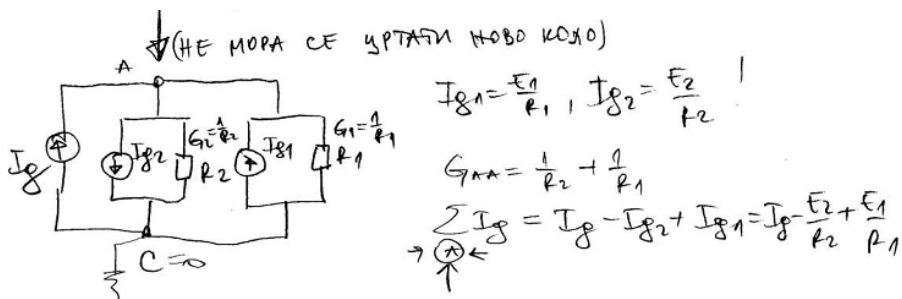 (НЕ МОРА СЕ ЦРТАТИ НОВО КОЛО)
A
Ig
Ig2
G2=1/R2
R2
Ig1
G1=1/R1
R1
C=0
Ig1=E1/R1, Ig2=E2/R2 !
GAA=1/R2+1/R1
ΣIg=Ig-Ig2+Ig1=Ig-E2/R2+E1/R1
→(A)←